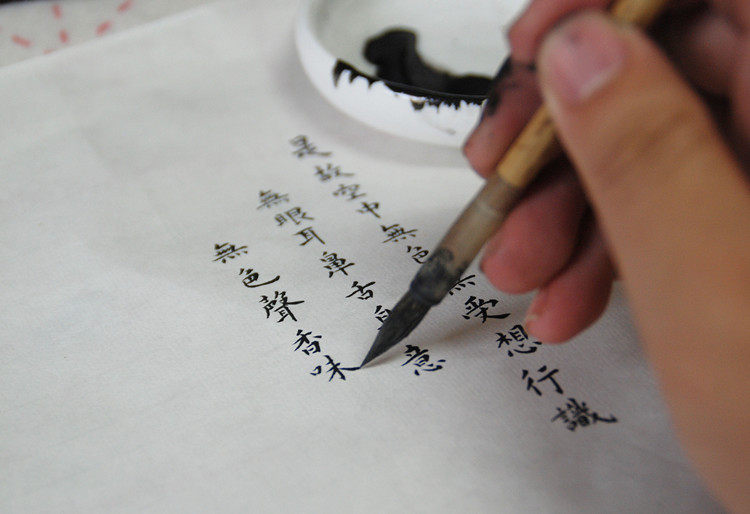 是故空中無色無受想行識
無眼耳鼻舌身意
無色聲香味